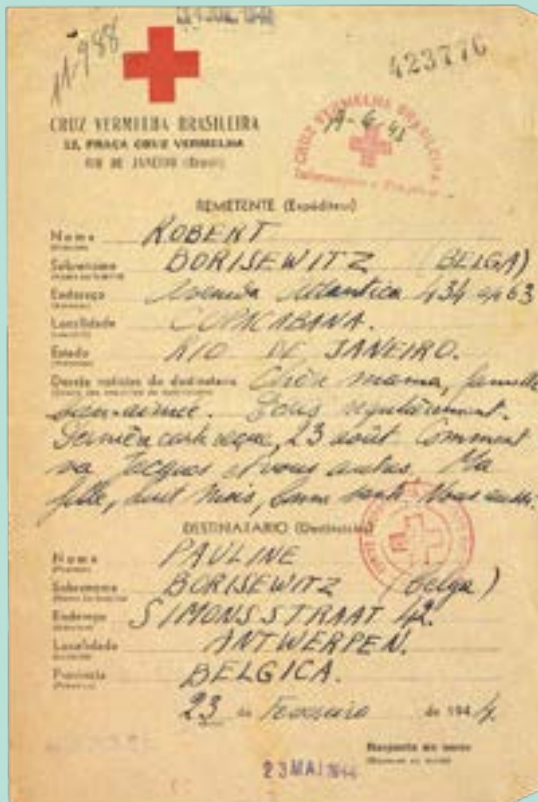 11-988
423776
CRUZ VERMELHA BRASILEIRA
12, PRAÇA CRUZ VERMELHA
RIO DE JANEIRO (Brasil)
CRUZ VERMELHA BRASILEIRA
REMETENTE (Expéditeur)
Nome ROBERT
Sobrenome BORISEWITZ (BELGA)
Endereço Avenida Atlantica 434 ap 63
Localidade COPACABANA.
Estado RIO DE JANEIRO.
Deseja noticias do destinatario Chère mama, famille
bien-aimée. Ecris regulièrement.
Dernière carte reçue, 23 août. Comment
va Jacques et vous autres. Ma
fille, huit mois, bonne santé. Vous aussi.
DESTINATARIO (Destinataire)
Nome PAULINE
Sobrenome BORISEWITZ (Belga)
Endereço SIMONSSTRAAT 42.
Localidade ANTWERPEN.
Provincia BELGICA.
23 de Fevereiro de 1944.
Resposta no verso
23 MAI 1944